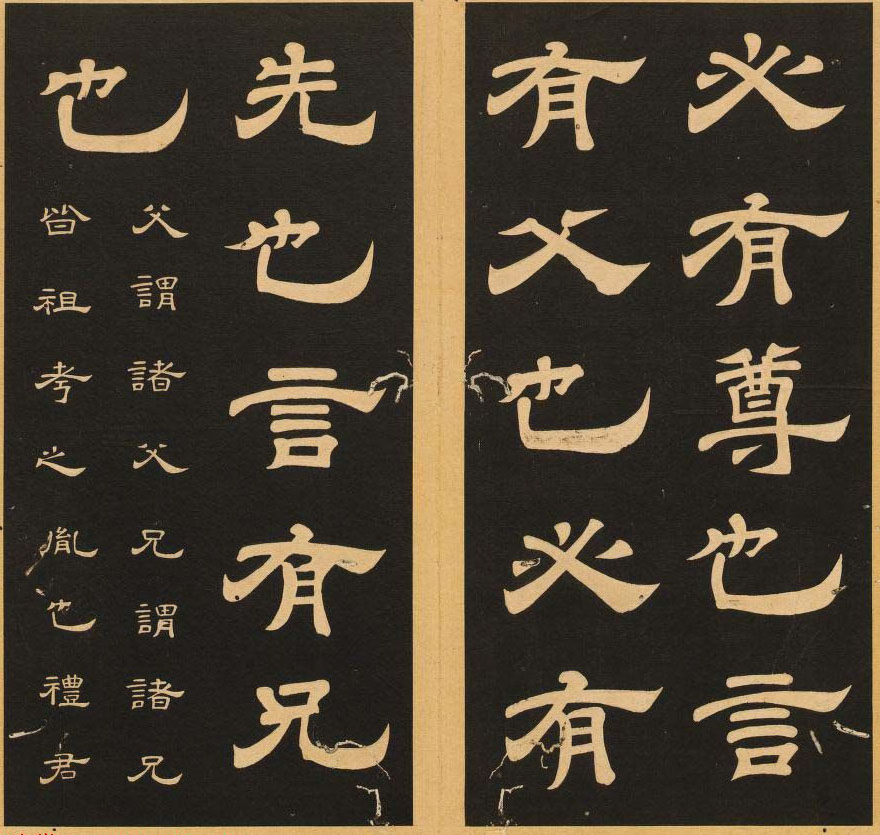 必有尊也言
有父也必有
先也言有兄
也
父謂諸父兄謂諸兄
皆祖考之胤也禮君